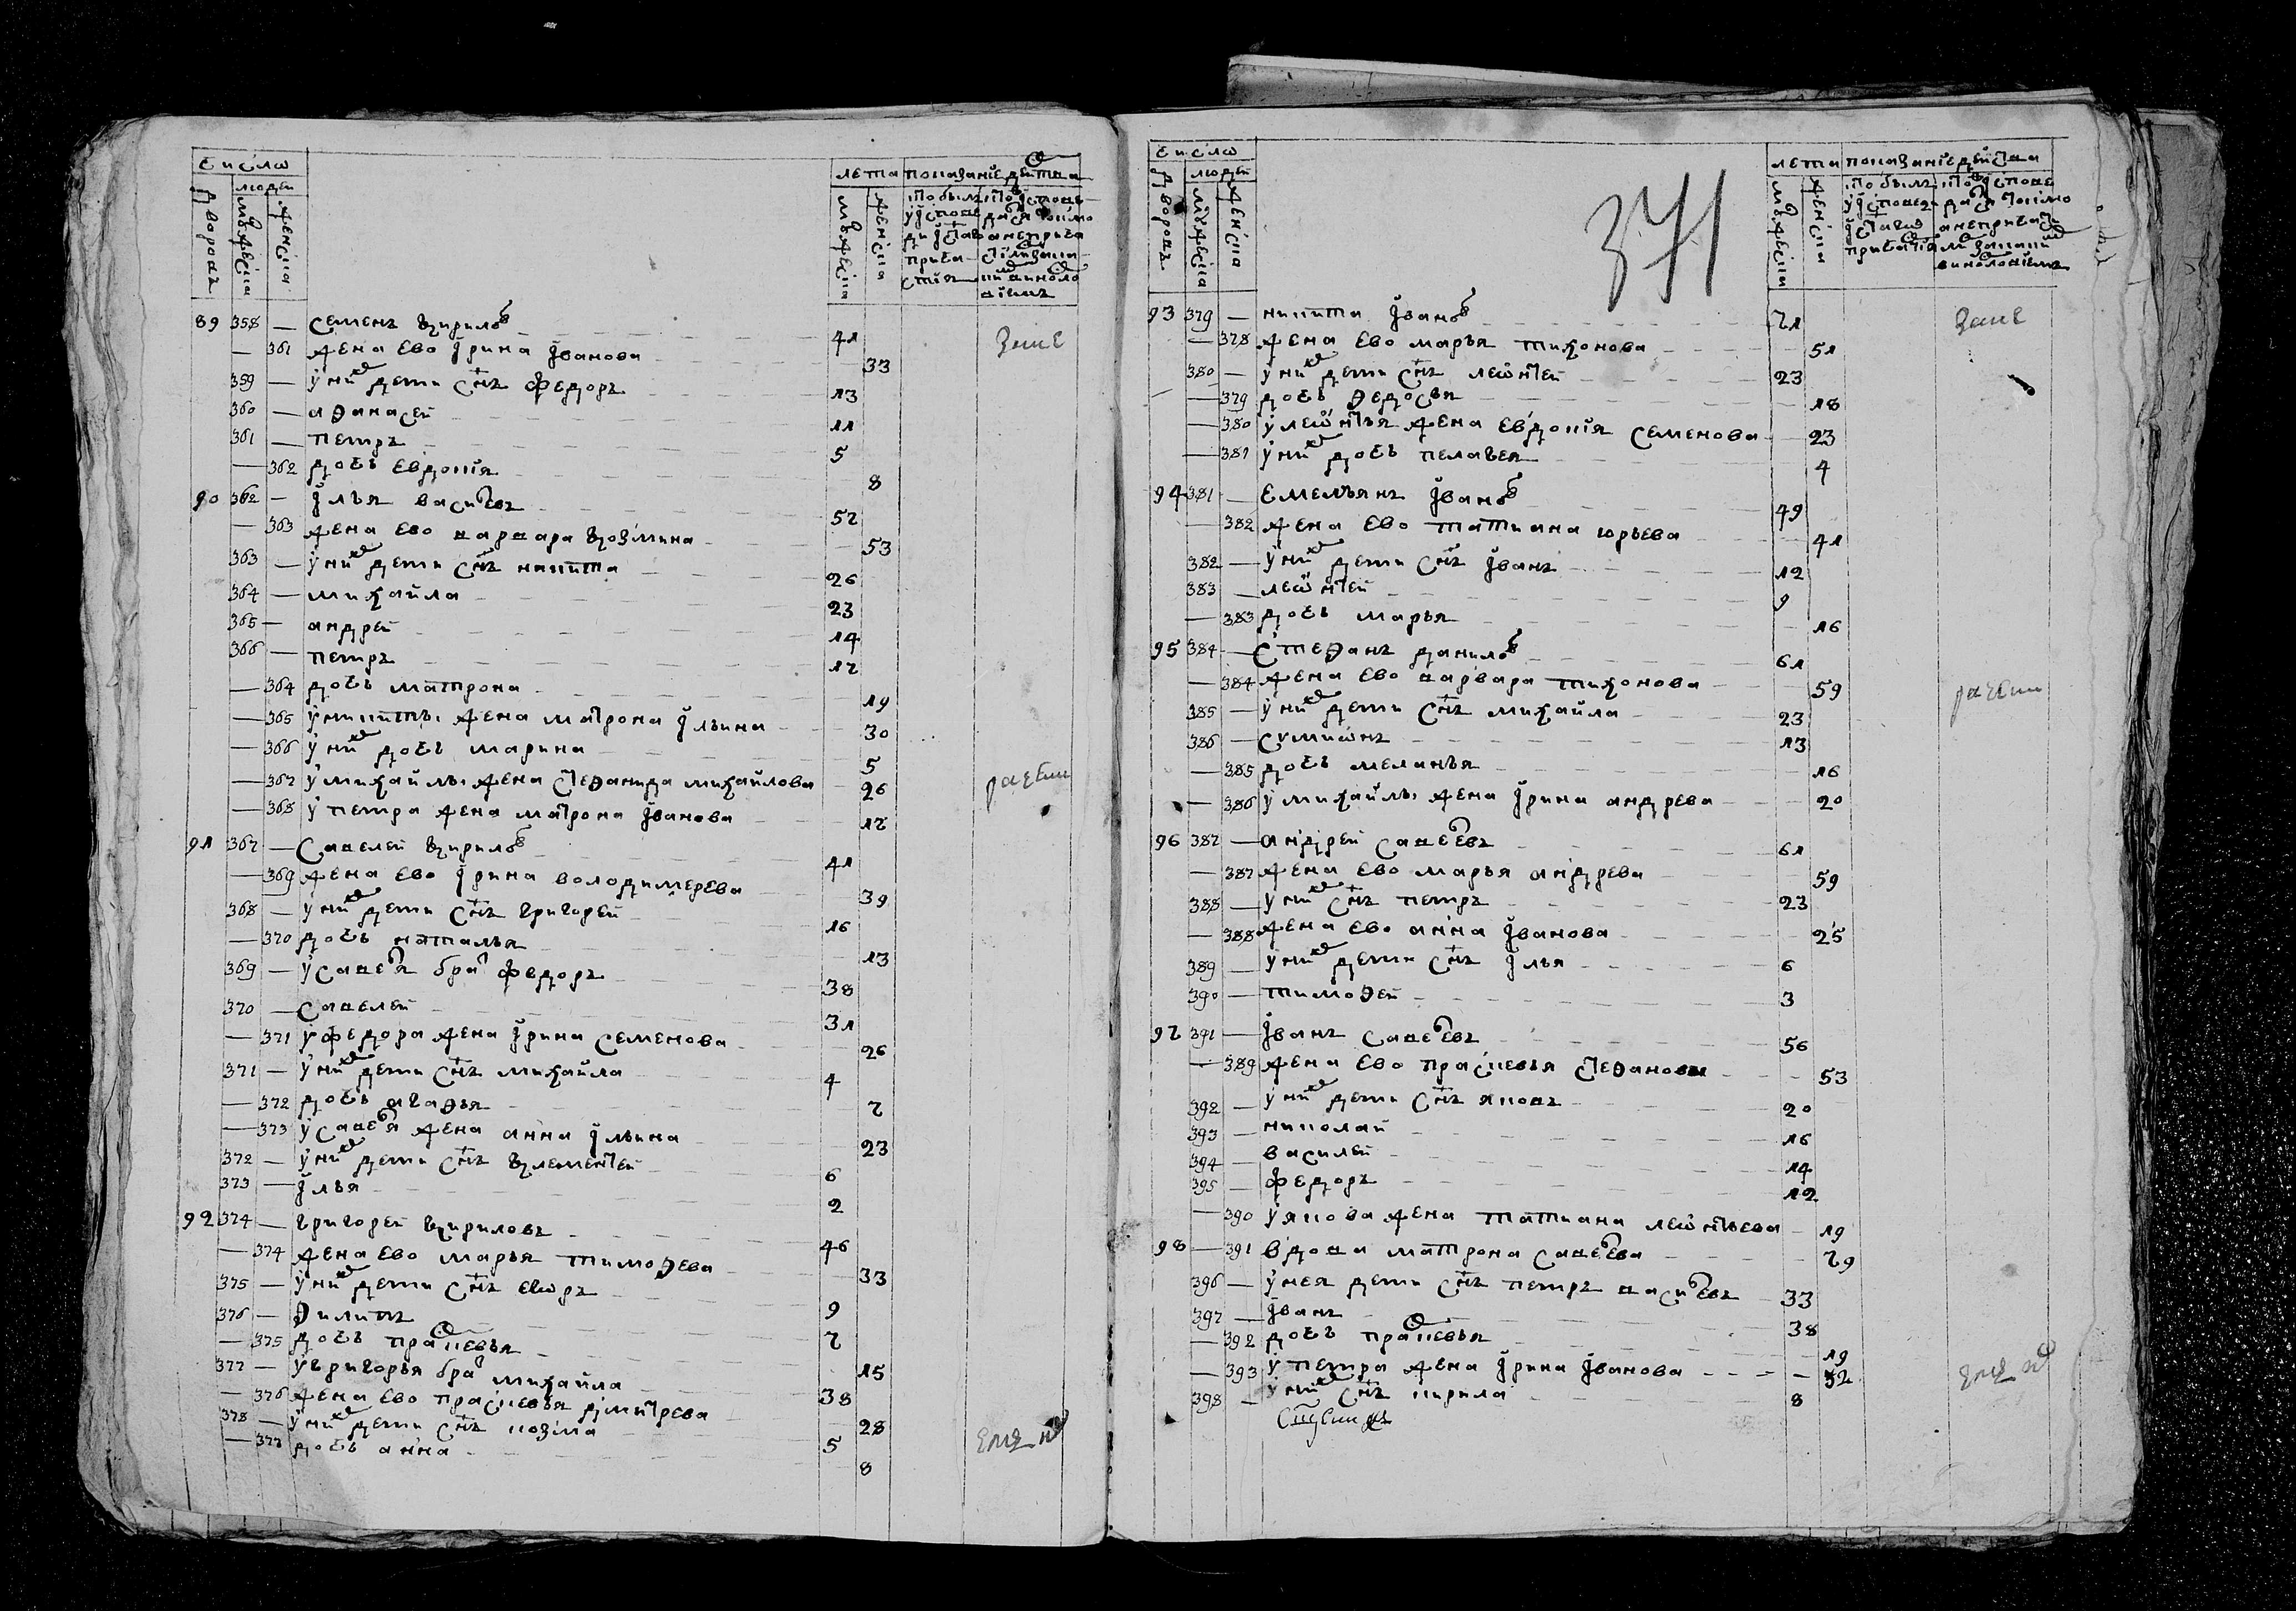 Число
людей
дворовъ
мужеска
женска
лета
показание действа
мужеска
женска
89 358 — Семенъ Кириловъ 41
— 361 жена ево Ірина Іванова 33
359 — у них дети снъ Федоръ 13
360 — Аѳанасей 11
361 — Петръ 5
— 362 дочь Евдокія 8
90 362 — Ілья Василевъ 57
— 363 жена ево Варвара Козмина 53
363 — у них дети снъ Никита 26
364 — Михайла 23
365 — Андрей 14
366 — Петръ 17
— 364 дочь Матрона 19
— 365 у Никиты жена Матрона Ільина 30
— 366 у них дочь Марина 5
— 367 у Михайлы жена Стеѳанида Михайлова 26
— 368 у Петра жена Матрона Іванова 17
91 367 — Савелей Кириловъ 41
— 369 жена ево Ірина Володимерева 39
368 — у них дети снъ Григорей 16
— 370 дочь Наталья 13
369 — у Савелья брат Федоръ 38
370 — Савелей 31
— 371 у Федора жена Ірина Семенова 26
371 — у них дети снъ Михайла 4
— 372 дочь Агаѳья 7
— 373 у Савелья жена Анна Ільина 23
372 — у них дети снъ Клементей 6
373 — Ілья 2
92 374 — Григорей Кириловъ 46
— 374 жена ево Марья Тимоѳева 33
375 — у них дети снъ Егоръ 9
376 — Ѳилипъ 7
— 375 дочь Прасковья 15
377 — у Григорья брат Михайла 38
— 376 жена ево Прасковья Дмитрева 28
378 — у них дети снъ Козма 5
— 377 дочь Анна 8
Число
людей
дворовъ
мужеска
женска
371
лета
показание действа
мужеска
женска
93 379 — Никита Івановъ 71
— 378 жена ево Марья Тихонова 51
380 — у них дети снъ Леѡнтей 23
— 379 дочь Ѳедосья 18
— 380 у Леѡнтья жена Евдокія Семенова 23
— 381 у них дочь Пелагея 4
94 381 — Емельянъ Івановъ 49
— 382 жена ево Татиана Юрьева 41
382 — у них дети снъ Іванъ 12
383 — Леѡнтей 9
— 383 дочь Марья 16
95 384 — Стеѳанъ Даниловъ 61
— 384 жена ево Варвара Тихонова 59
385 — у них дети снъ Михайла 23
386 — Сѵмиѡнъ 13
— 385 дочь Меланья 16
— 386 у Михайлы жена Ірина Андрева 20
96 387 — Андрей Савелевъ 61
— 387 жена ево Марья Андрева 59
388 — у них снъ Петръ 23
— 388 жена ево Анна Іванова 25
389 — у них дети снъ Ілья 6
390 — Тимоѳей 3
97 391 — Іванъ Савелевъ 56
— 389 жена ево Прасковья Стеѳанова 53
392 — у них дети снъ Яковъ 20
393 — Николай 16
394 — Василей 14
395 — Федоръ 12
— 390 у Якова жена Татиана Леѡнтьева 19
98 — 391 вдова Матрона Савелева 79
396 — у нея дети снъ Петръ Василевъ 33
397 — Іванъ 38
— 392 дочь Прасковья 19
— 393 у Петра жена Ірина Іванова 32
398 — у них снъ Кирила 8